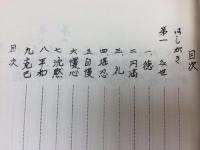 目次
はしがき
第一 と世
一、徳
二、円満
三、礼
四、堪忍
五、自慢
六、慢心
七、沈黙
八、平和
九、克己
目次